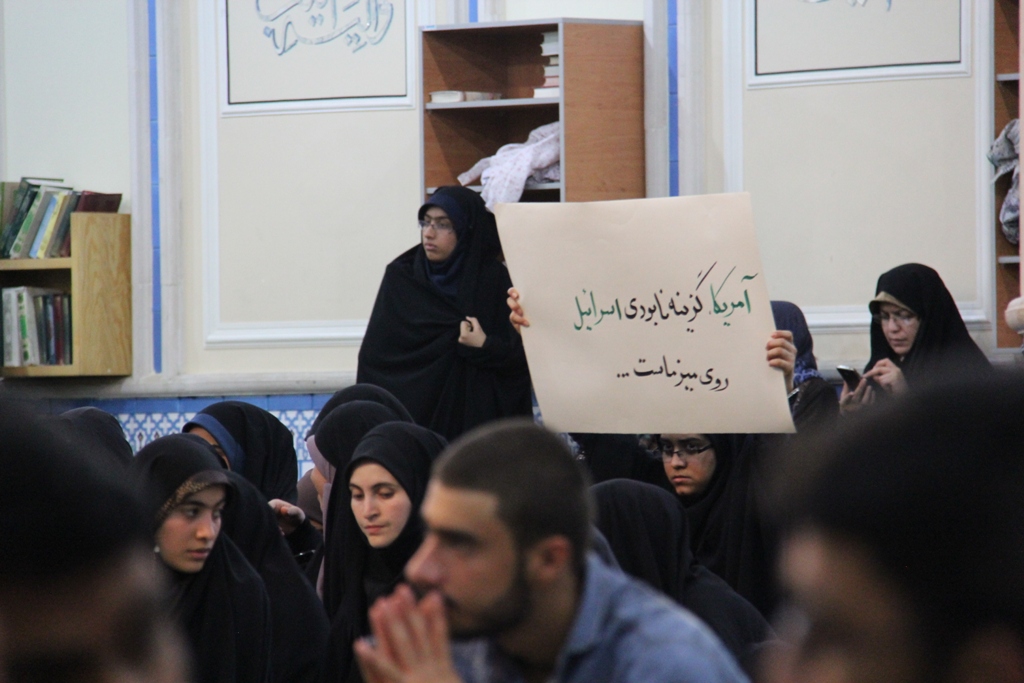 آمریکا، گزینه نابودی اسرائیل
روی میز ماست ...